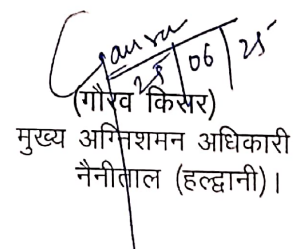 Gaurav
25/06/25
(गौरव किसर)
मुख्य अग्निशमन अधिकारी
नैनीताल (हल्द्वानी)।